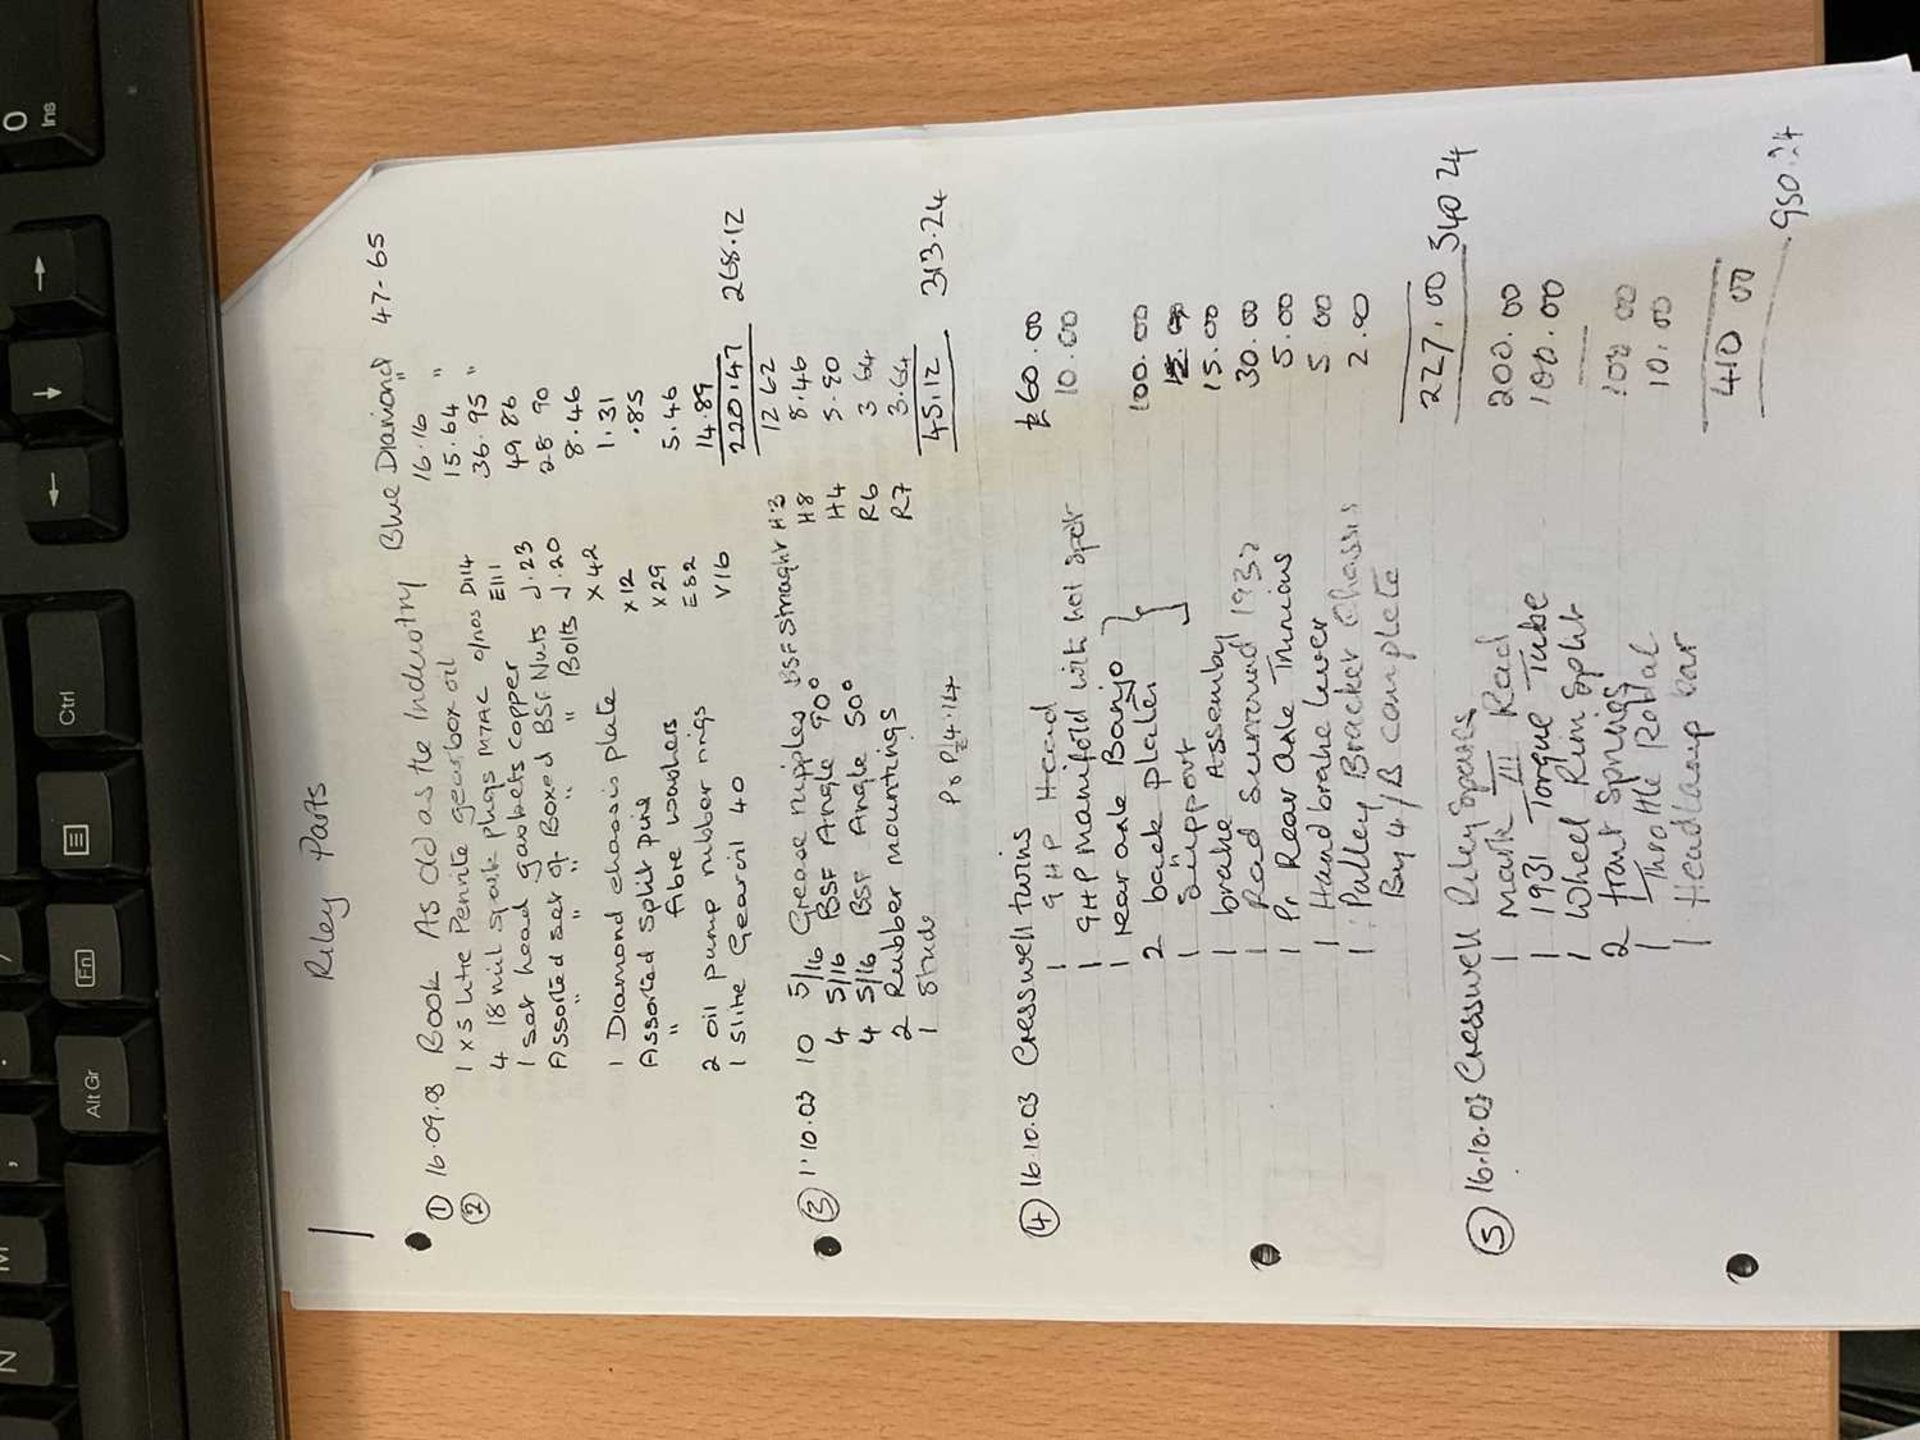 1
Riley Parts
① 16.09.03 Book As Old as the Industry Blue Diamond 47-65
② 1 x 5 litre Pennite gearbox oil D114 " 16.16
4 18 mil spark plugs M7AC o/nos E111 15.64 "
1 set head gaskets copper 36.95 "
Assorted set of Boxed BSF Nuts J.23 49 86
" " " " " Bolts J.20 28 90
X42 8.46
1 Diamond chassis plate X12 1.31
Assorted split pins X29 .85
" fibre washers E82 5.46
2 oil pump rubber rings V16 14.89
1 5 litre Gear oil 40 220.47 268.12
③ 1.10.03 10 5/16 Grease nipples BSF Straight H3 12 62
4 5/16 BSF Angle 90° H8 8.46
4 5/16 BSF Angle 50° H4 5.90
2 Rubber mountings R6 3 64
1 Studs R7 3.64
45.12 313.24
P&P £4.14
④ 16.10.03 Cresswell twins
1 9HP Head £60.00
1 9HP manifold with hot spot 10.00
1 rear axle Banjo
2 back plates 100.00
1 Support
1 brake Assembly 15.00
1 Rad Surround 1932 30.00
1 Pr Rear axle Trunions 5.00
1 Handbrake lever 5 00
1 Pulley Bracket Chassis 2.00
By 4/B complete
227.00 540 24
⑤ 16.10.03 Cresswell Riley Spares
1 Mark III Rad 200.00
1 1931 Torque Tube 100.00
1 Wheel Rim Split
2 front springs 100 00
1 Throttle Pedal 10.00
1 Headlamp bar
410 00
950.24
0
Ins
Ctrl
Fn
Alt Gr
M
N